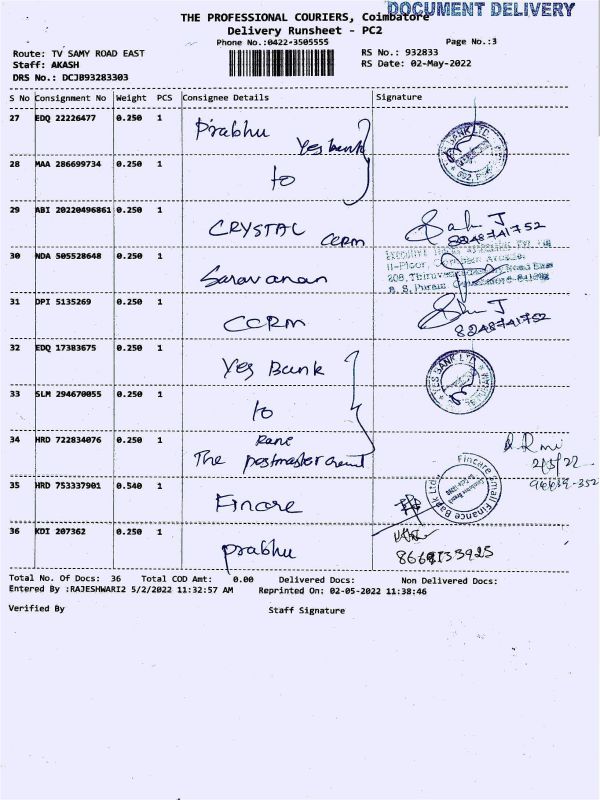 DOCUMENT DELIVERY
THE PROFESSIONAL COURIERS, Coimbatore
Delivery Runsheet - PC2
Phone No.:0422-3505555
Page No.:3
Route: TV SAMY ROAD EAST
RS No.: 932833
Staff: AKASH
RS Date: 02-May-2022
DRS No.: DCJB93283303
S No Consignment No Weight PCS Consignee Details Signature
27 EDQ 22226477 0.250 1 Prabhu
Yes bank
28 MAA 286699734 0.250 1 to
29 ABI 20220496861 0.250 1 CRYSTAL CCRM
8248741752
30 NDA 505528648 0.250 1 Saravanan
31 DPI 5135269 0.250 1 CCRM
8248741752
32 EDQ 17383675 0.250 1 Yes Bank
YES BANK LTD
33 SLM 294670055 0.250 1 to
34 HRD 722834076 0.250 1
The postmaster
2/5/22
35 HRD 753337901 0.540 1 Fincare
Fincare Small Finance Bank Ltd
36 KDI 207362 0.250 1 prabhu
Total No. Of Docs: 36 Total COD Amt: 0.00 Delivered Docs: Non Delivered Docs:
Entered By :RAJESHWARI2 5/2/2022 11:32:57 AM Reprinted On: 02-05-2022 11:38:46
Verified By Staff Signature